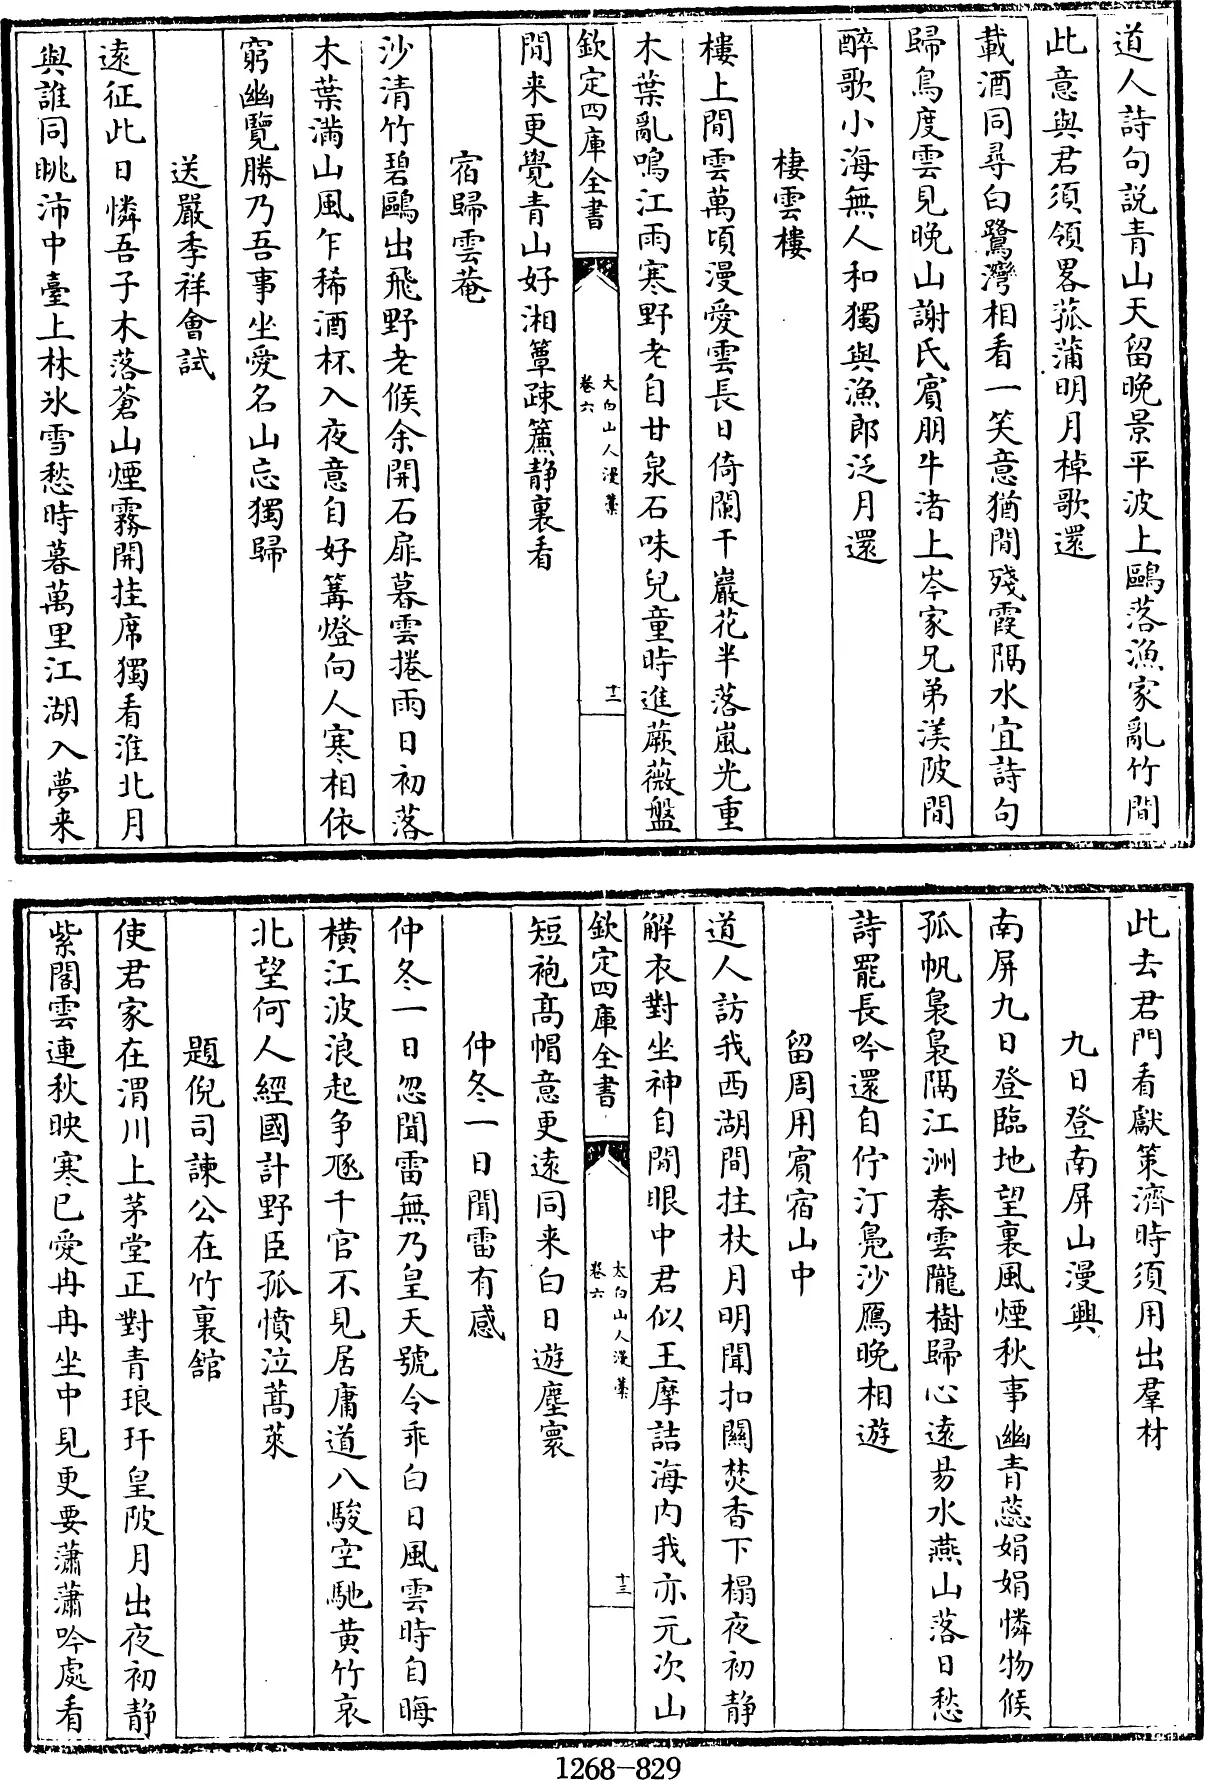 道人詩句説青山天留晩景平波上鷗落漁家亂竹間
此意與君須領畧菰蒲明月棹歌還
載酒同尋白鷺灣相看一笑意猶閒殘霞隔水宜詩句
歸鳥度雲見晩山謝氏賓朋牛渚上岑家兄弟渼陂間
醉歌小海無人和獨與漁郎泛月還
棲雲樓
樓上閒雲萬頃漫愛雲長日倚闌干巖花半落嵐光重
木葉亂鳴江雨寒野老自甘泉石味兒童時進蕨薇盤
欽定四庫全書
太白山人漫藁
卷六
十二
閒来更覺青山好湘簟疎簾静裏看
宿歸雲菴
沙清竹碧鷗出飛野老候余開石扉暮雲捲雨日初落
木葉滿山風乍稀酒杯入夜意自好篝燈向人寒相依
窮幽覽勝乃吾事坐愛名山忘獨歸
送嚴季祥會試
遠征此日憐吾子木落蒼山煙霧開挂席獨看淮北月
與誰同眺沛中臺上林氷雪愁時暮萬里江湖入夢来
此去君門看獻策濟時須用出羣材
九日登南屏山漫興
南屏九日登臨地望裏風煙秋事幽青蕊娟娟憐物候
孤帆裊裊隔江洲秦雲隴樹歸心遠易水燕山落日愁
詩罷長吟還自佇汀鳧沙鴈晩相遊
留周用賓宿山中
道人訪我西湖間拄杖月明聞扣關焚香下榻夜初静
解衣對坐神自閒眼中君似王摩詰海内我亦元次山
欽定四庫全書
太白山人漫藁
卷六
十三
短袍髙帽意更遠同来白日遊塵寰
仲冬一日聞雷有感
仲冬一日忽聞雷無乃皇天號令乖白日風雲時自晦
横江波浪起争豗千官不見居庸道八駿空馳黄竹哀
北望何人經國計野臣孤憤泣蒿萊
題倪司諫公在竹裏舘
使君家在渭川上茅堂正對青琅玕皇陂月出夜初静
紫閣雲連秋映寒已愛冉冉坐中見更要瀟瀟吟處看
1268-829